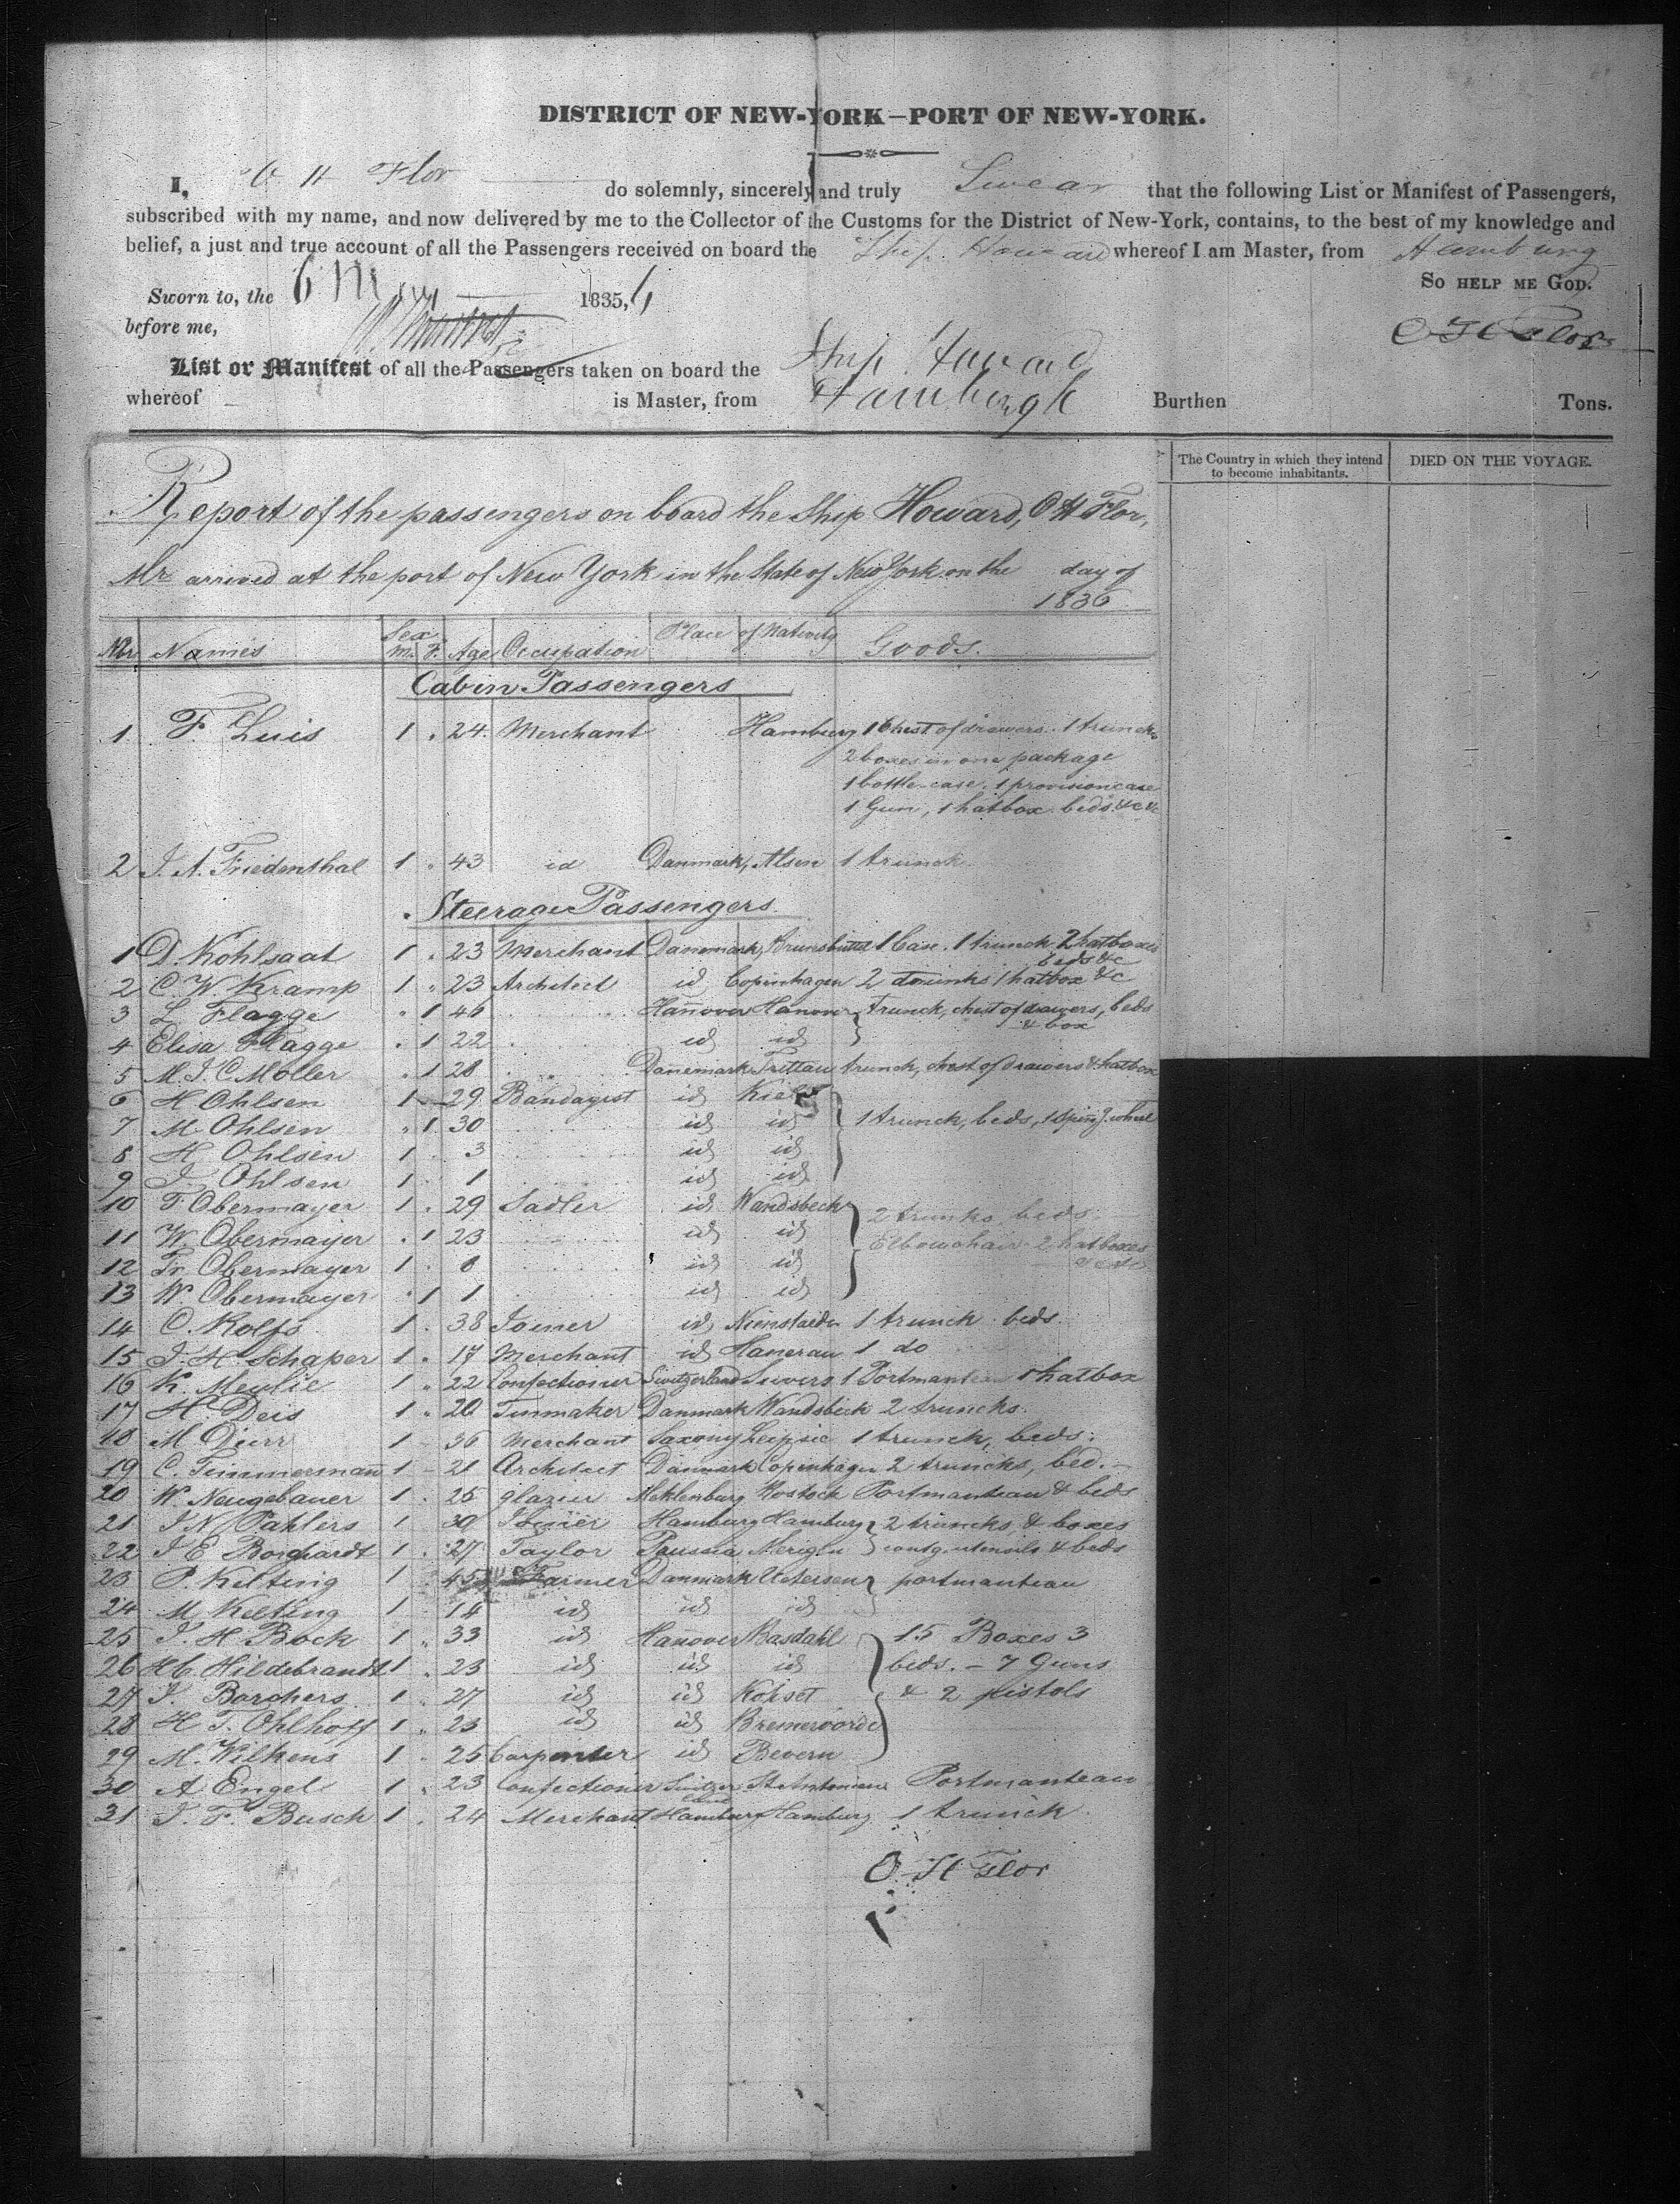 DISTRICT OF NEW-YORK—PORT OF NEW-YORK.
I, O H Flor do solemnly, sincerely and truly Swear that the following List or Manifest of Passengers,
subscribed with my name, and now delivered by me to the Collector of the Customs for the District of New-York, contains, to the best of my knowledge and
belief, a just and true account of all the Passengers received on board the Ship Howard whereof I am Master, from Hamburg
So HELP ME GOD.
Sworn to, the 6 1835,6
before me,
O H Flor
List or Manifest of all the Passengers taken on board the Ship Howard
whereof is Master, from Hamburgh Burthen Tons.
The Country in which they intend to become inhabitants. DIED ON THE VOYAGE.
Report of the passengers on board the Ship Howard, O H Flor,
Mr arrived at the port of New York in the State of New York on the day of
1836
Nbr Names Sex M. F. Age Occupation Place of Nativity Goods.
Cabin Passengers
1 F. Luis 1 " 24 Merchant Hamburg 1 Chest of drawers. 1 trunck
2 boxes in one package
1 bottle-case. 1 provision case
1 Gun, 1 hatbox beds &c &c
2 J. A. Friedenthal 1 " 43 id Danmark, Alsen 1 trunck
Steerage Passengers
1 D. Kohlsaat 1 " 23 Merchant Danemark, Brunsbüttel 1 Case. 1 trunck 2 hatboxes
beds &c
2 C. W. Kramp 1 " 23 Architect id Copenhagen 2 trunks 1 hatbox &c
3 L Flagge " 1 46 Hannover Hanover trunck, chest of drawers, beds
& box
4 Elisa Flagge " 1 22 id id
5 M. J. C Möller " 1 28 Danemark Trittau trunck, chest of drawers & hatbox
6 H Ohlsen 1 29 Bandagist id Kiel
7 M. Ohlsen " 1 30 id id 1 trunck, beds, 1 spinng. wheel
8 H Ohlsen 1 3 id id
9 J. Ohlsen 1 1 id id
10 F. Obermayer 1 " 29 Sadler id Wandsbeck 2 trunks, beds
11 W. Obermayer " 1 23 id id Elbowchair 2 hatboxes
12 Fr Obermayer 1 id id
13 W Obermayer " 1 1 id id
14 C. Rolfs 1 " 38 Joiner id Nienstaedten 1 trunck beds.
15 J. H. Schaper 1 " 17 Merchant id Hanerau 1 do
16 K. Meulie 1 " 22 Confectioner Switzerland 1 Portmanteau 1 hatbox
17 H Deis 1 " 20 Tinmaker Danmark Wandsbeck 2 truncks.
18 M Dürr 1 36 Merchant Saxony Leipsic 1 trunck, beds.
19 C. Timmermann 1 - 21 Architect Danmark Copenhagen 2 truncks, bed. -
20 W. Neugebauer 1 " 25 glazier Meklenburg Rostock Portmanteau & beds
21 J N Pahlers 1 30 Joiner Hamburg Hamburg 2 truncks & boxes
22 J E Borchardt 1 " 27 Taylor Prussia contg. utensils & beds
23 P. Kelting 1 45 Farmer Danmark Uetersen portmanteau
24 M Kelting 1 14 id id id
25 J. H. Bock 1 " 33 id Hannover Basdahl 15 Boxes 3
26 H C. Hildebrandt 1 " 23 id id id beds. - 7 Guns
27 J. Borchers 1 " 27 id id & 2 pistols
28 H F. Ohlhoff 1 " 23 id id Bremervorde
29 M. Wilkens 1 " 25 Carpenter id Bevern
30 A Engel 1 " 23 Confectioner Switzerland St Antonien Portmanteau
31 J. F. Busch 1 " 24 Merchant Hamburg Hamburg 1 trunck
O. H Flor